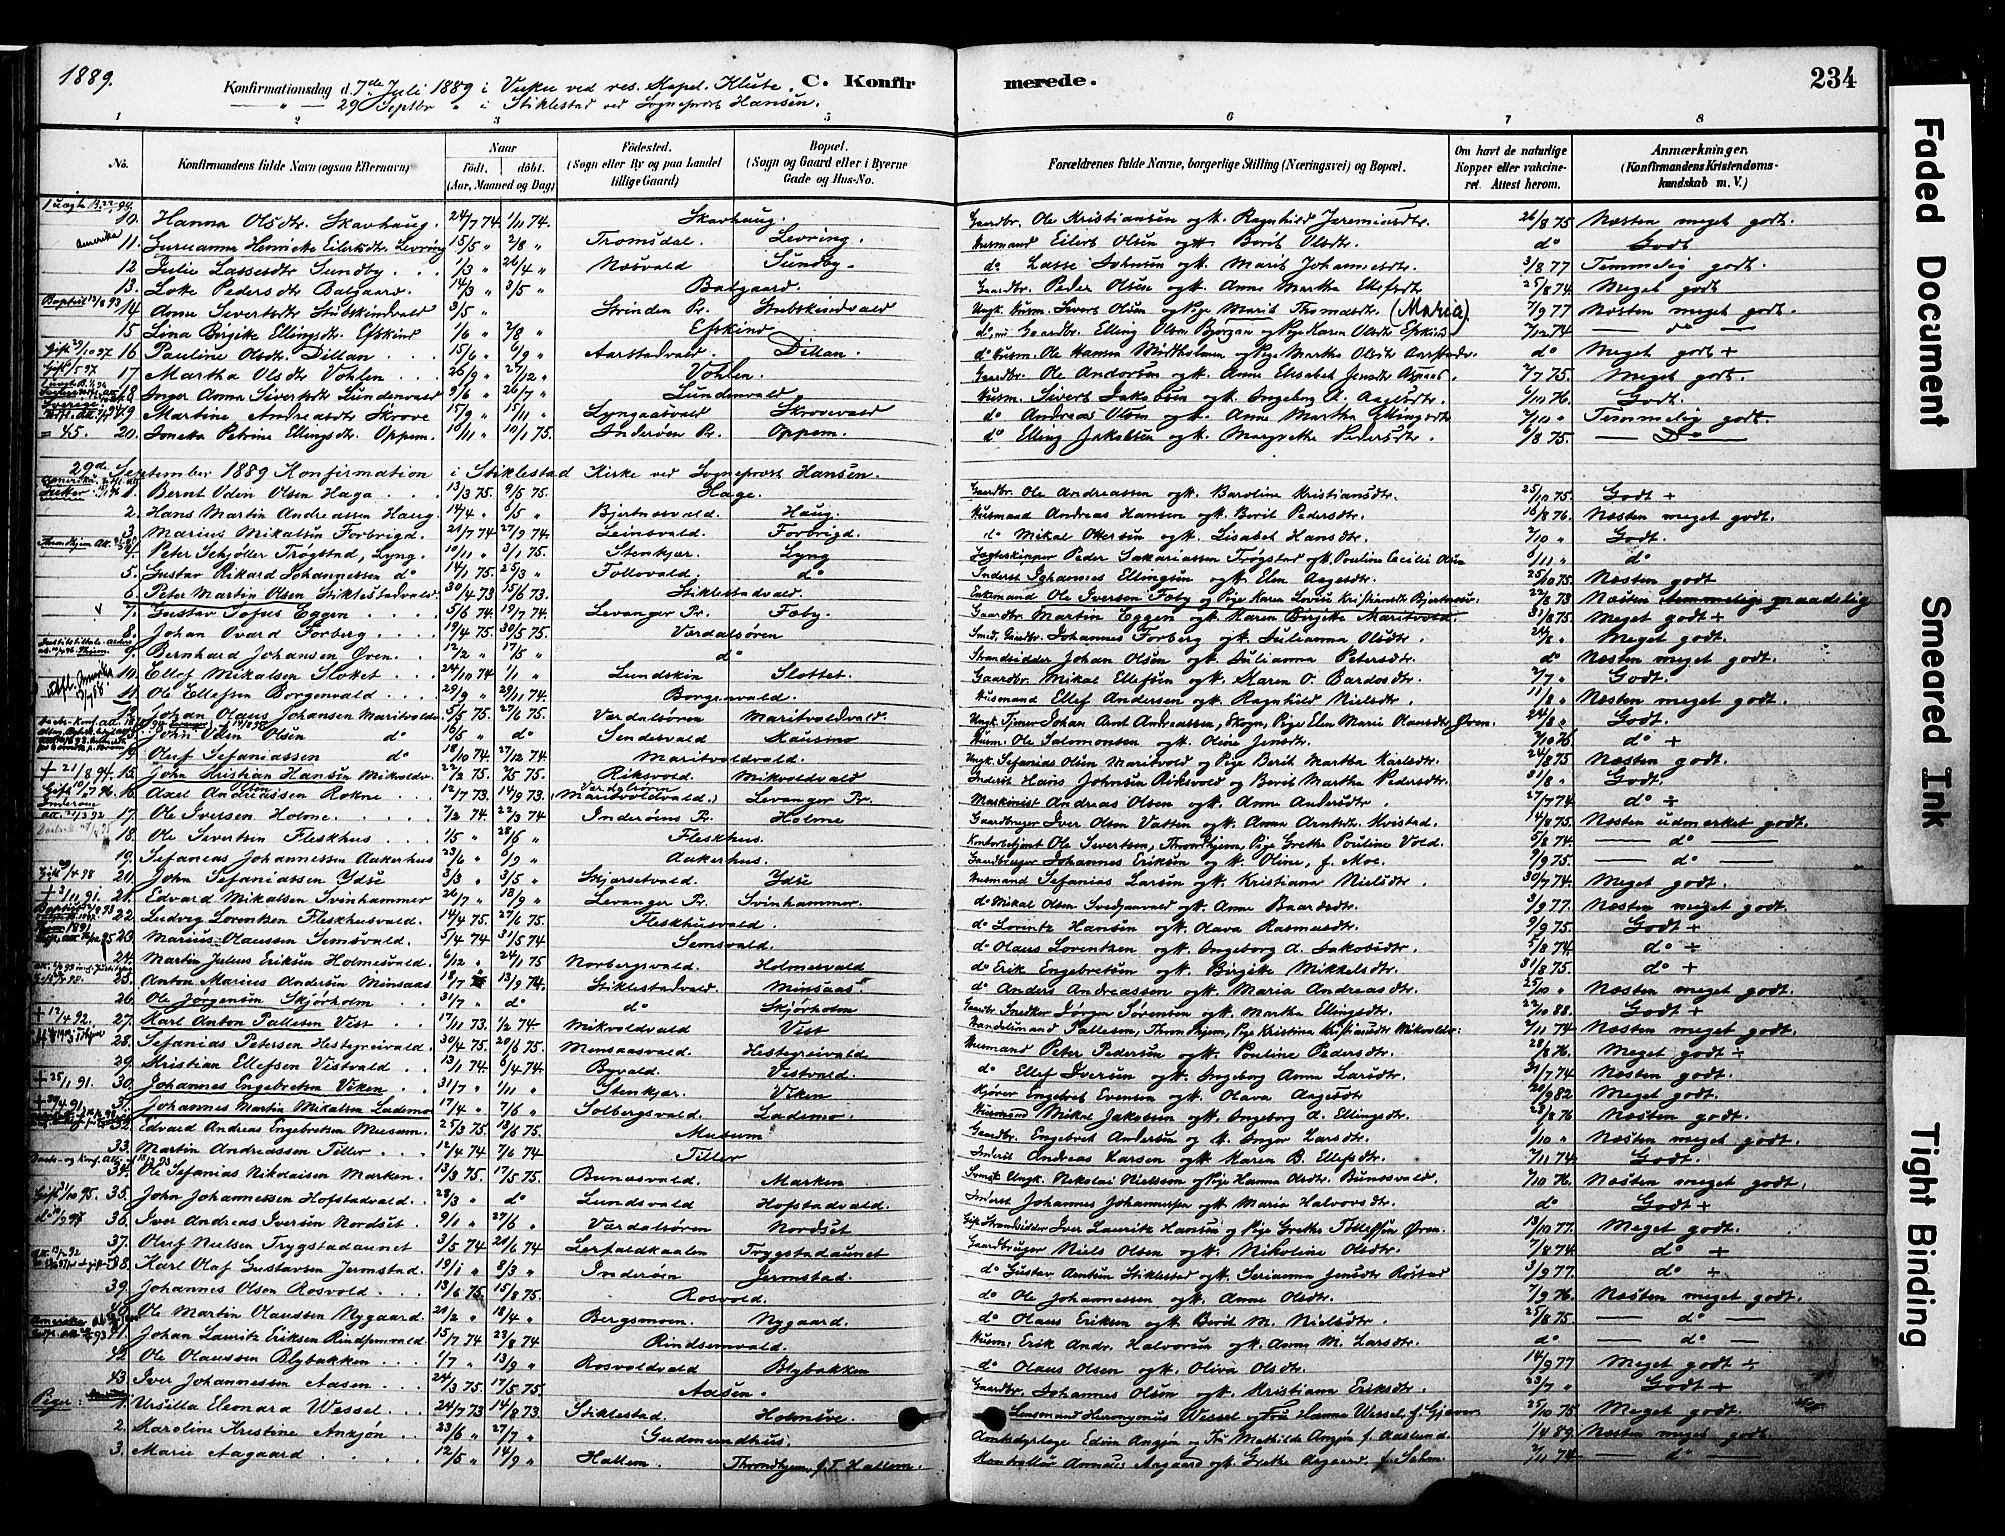 1889.
Konfirmationsdag d. 7de Juli 1889 i Vuku ved res. Kapel. Klüwe. C. Konfirmerede. 234
29 Septbr " i Stiklestad ved Sogneprest Hansen.
1 2 3 4 5 6 7 8
No. Konfirmandens fulde Navn (ogsaa Efternavn) Naar født. døbt. (Aar, Maaned og Dag) Fødested. (Sogn eller By og paa Landet tillige Gaard) Bopæl. (Sogn og Gaard eller i Byerne Gade og Hus-No. Forældrenes fulde Navne, borgerlige Stilling (Næringsvei) og Bopæl. Om havt de naturlige Kopper eller vakcineret. Attest herom. Anmærkninger. (Konfirmandens Kristendomskundskab m. V.)
10. Hanna Olsdtr. Skavhaug. 24/7 74. 1/11 74. Skavhaug. Gaardbr. Ole Kristiansen og H. Ragnhild Jeremiasdtr. 26/8 75 Næsten meget godt.
Amerika 11. Guruanna Henrikke Eilertsdtr. Levring 15/5 " 2/8 " Tromsdal. Levring. Husmand Eilert Olsen og H. Berit Olsdtr. do Godt
12 Julie Lassesdtr Sundby. 1/3 " 26/4 " Næsvald Sundby. do Lasse Johnsen og H. Marit Johannesdtr. 3/8 77 Temmelig godt.
13. Lotte Pedersdtr Balgaard. 14/3 " 3/5 " Balgaard. Gaardbr. Peder Olsen og H. Anne Martha Ellefsdtr. 25/8 74 Meget godt
14 Anne Sivertsdtr Stubskindvald 3/5 " Strinden Pr. Stubskindvald Ungk. Husm. Sivert Olsen og Pige Marit Thomasdtr. (Maria) 7/9 77 Næsten meget godt.
15 Lina Birgitte Ellingsdtr. Efskind 1/6 " 2/8 " Efskind do, nu Gaardbr. Elling Olsen Bjorgan og Pige Karen Olsdtr Efskind 7/12 74 — do —
16 Pauline Olsdtr. Dillan 15/6 " 6/9 " Aarstadvald. Dillan. do Husm. Ole Hansen Midtholmen og Pige Martha Olsdtr Aarstadv. do Meget godt +
17 Martha Olsdtr Vohlen 26/9 " 27/12 " Vohlen. Gaardbr. Ole Andorsen og H. Anne Elisabet Jensdtr Aspaas. 2/7 75. Meget godt.
18. Inger Anna Sivertsdtr Lundenvald 9/6 " 26/7 " Lundenvald Husm. Sivert Jakobsen og H. Ingeborg A. Aagesdtr. 6/10 76. Godt.
19. Martine Andreasdtr Skrove 15/9 " 15/11 " Lyngaasvald Skrovevald do Andreas Olsen og H. Anne Martha Ellingsdtr 7/10 " Temmelig godt.
= 45. 20. Joneta Petrine Ellingsdtr. Oppem. 10/11 " 10/1 75. Inderøen Pr. Oppem. do Elling Jakobsen og H. Margrethe Pedersdtr. 6/8 75. — Do —
29de September 1889 Konfirmation i Stiklestad Kirke ved Sogneprest Hansen.
1. Bernt Odin Olsen Haga 13/3 75. 9/5 75. Hage. Gaardbr. Ole Andreassen og H. Baroline Kristiansdtr. 25/10 75. Godt +
2. Hans Martin Andreassen Haug. 14/4 " 6/5 " Bjertnesvald. Haug. Husmand Andreas Hansen og H. Berit Pedersdtr. 16/8 76. Næsten meget godt.
3. Marius Mikalsen Forbrigd. 21/7 74 27/9 74. Leinsvald. Forbrigd. do Mikal Ottersen og H. Lisabet Hansdtr. 7/10 " Godt.
4. Peter Schjøller Trøgstad, Lyng. 10/11 " 3/1 75. Stenkjær. Lyng Jagteskipper Peder Sakariassen Trøgstad og H. Pouline Cecilie Olsen 6/11 " do
5. Gustav Rikard Johannessen do 14/1 75. 25/3 " Follovald. do Inderst Johannes Ellingsen og H. Elen Aagesdtr. 25/10 75. Næsten godt
6. Peter Martin Olsen Stiklestadvald. 30/4 73 15/6 73. Stiklestadvald. Enkemand Ole Iversen Fæby og Pige Karen Lovise Kristiansdtr Bjertnesv. 22/8 73 Næsten temmelig maadelig
7. Gustav Tofus Eggen 5/6 74 19/7 74. Levanger Pr. Fæby. Gaardbr. Martin Eggen og H. Karen Birgitte Maritvold. 31/8 75. Meget godt +
8. Johan Ovard Forberg 19/4 75. 30/5 75. Verdalsøren Smed, Gaardbr. Johannes Forberg og H. Julianna Olsdtr. 24/8 " Meget godt.
9. Bernhard Johansen Øren. 12/2 " 17/5 " do Strandsidder Johan Olsen og H. Julianna Petersdtr. do Næsten meget godt.
10. Ellef Mikalsen Slottet 24/10 74 1/1 " Lundskin Slottet. Gaardbr. Mikal Ellefsen og H. Karen O. Bardosdtr. 2/7 " Godt.
11. Ole Ellefsen Borgenvald 29/9 " 29/11 74. Borgenvald. Husmand Ellef Andersen og H. Ragnhild Nielsdtr. 11/8 " Næsten meget godt.
12. Johan Olaus Johansen Maritvoldv. 5/5 75. 27/6 75. Verdalsøren Maritvoldvald. Ungk. Tjener Johan Arnt Andreassen, Skogn, Pige Elen Marie Olausdtr Øren. 24/8 " Godt.
John Viken Olsen do 16/5 " do Sendesvald Mausmo Husm. Ole Salomonsen og H. Oline Jensdtr. 7/10 76 do +
14. Oluf Sefaniassen do 18/10 74 27/12 74. Maritvoldvald. Ungk. Sefanias Olsen Maritvold og Pige Berit Martha Karlsdtr. 24/8 75 Næsten godt.
+ 21/8 94. 15. John Kristian Hansen Mikvoldv. 22/2 75. 7/5 75. Riksvold. Mikvoldvald Inderst Hans Johnsen Riksvold og Berit Martha Pedersdtr. 31/8 " Godt.
16. Axel Andreassen Rokne. 12/7 73. 14/9 73. Verdalsøren (Maritvoldvald.) Levanger Pr. Maskinist Andreas Olsen og H. Anne Andersdtr. 27/7 74 do ÷
17. Ole Iversen Holme. 7/2 74. 22/3 74 Inderøens Pr. Holme Gaardbruger Iver Olsen Vatten og H. Anna Arntsdtr. Kvistad. 14/8 75. Næsten udmerket godt.
18. Ole Sivertsen Fleskhus 1/5 " 28/6 " Fleskhus. Kontorbetjent Ole Sivertsen, Throndhjem, Pige Grethe Pouline Vold. 5/8 74. — do —
19. Sefanias Johannessen Aakerhus 23/6 " 6/9 " Aakerhus. Gaardbruger Johannes Eriksen og H. Oline, f. Moe. 9/9 75. — do —
Gift 29/4 98 20. John Sefaniassen Ydse 3/3 " 3/5 " Skjørsetvald. Ydse Husmand Sefanias Larsen og H. Kristiana Nielsdtr. 30/7 74. Meget godt.
+ 3/11 91. 21. Edvard Mikalsen Svinhammer 26/7 " 18/9 " Levanger Pr. Svinhammer. do Mikal Olsen Svedjanvald og H. Anne Baardsdtr. 3/9 77. Næsten meget godt.
22. Ludvig Lorentzen Fleskhusvald. 14/4 75. 27/6 75. Fleskhusvald. do Lorentz Hansen og H. Olava Rasmusdtr. 9/9 75. Godt +
23. Marius Olaussen Semsvald. 5/4 74 31/5 74 Semsvald. do Olaus Lorentzen og H. Ingeborg A. Jakobsdtr. 5/8 74. do ÷
24. Martin Julius Eriksen Holmesvald. 6/12 " 24/1 75 Norbergsvald. Holmesvald do Erik Engebretsen og H. Birgitte Mikkelsdtr. 31/8 75. do +
25. Anton Marius Andersen Minsaas 18/7 13/9 74. Stiklestadvald. Minsaas. do Anders Andreassen og H. Maria Andreasdtr. 25/10 " Næsten meget godt.
26. Ole Jørgensen Skjørholm. 31/7 " do do Skjørholm Gaardbr. Snedker Jørgen Sørensen og H. Martha Ellingsdtr. 22/10 88. Godt +
+ 12/4 92. 27. Karl Anton Pallesen Vist 17/11 73. 1/2 74. Mikvoldvald Vist Handelsmand Pallesen, Throndhjem, Pige Kristina Kristiansdtr Mikvoldv. 7/11 74 Næsten meget godt.
28. Sefanias Petersen Hestegreivald. 30/4 75. 20/6 75. Mønsaasvald. Hestegreivald Husmand Peter Pedersen og H. Pouline Pedersdtr. 28/8 76. Meget godt ÷
29. Kristian Ellefsen Vistvald. 13/1 74 6/4 74. Byvald. Vistvald. do Ellef Iversen og H. Ingeborg Anna Larsdtr. 31/7 74 Næsten godt.
+ 25/11 91. 30. Johannes Engebretsen Viken 31/7 " 1/11 " Stenkjær. Viken Kjører Engebret Evensen og H. Olava Aagesdtr 20/9 82 Meget godt.
+ 29/4 91. 31. Johannes Martin Mikalsen Lademo 17/4 " 7/6 " Solbergsvald. Lademo. Husmand Mikal Jakobsen og H. Ingeborg A. Ellingsdtr. 28/8 76 Næsten godt.
32. Edvard Andreas Engebretsen Musum. 25/3 75. 13/6 75. Musum Gaardbr. Engebret Andersen og H. Inger Larsdtr. 6/10 " Næsten meget godt.
33. Martin Andreassen Tiller 12/4 74 7/6 74 Tiller Inderst Andreas Larsen og H. Karen B. Ellefsdtr. 7/11 74. Godt.
34. Ole Sefanias Nikolaisen Marken. 13/3 75. 17/5 75. Bunæsvald. Marken Ungk. Nikolai Nielssen og Pige Hanna Olsdtr. Bunesvald. 7/10 76. Næsten meget godt.
Gift 3/10 95. 35. John Johannessen Hofstadvald. 28/3 " do Lundsvald. Hofstadvald. Inderst Johannes Johannessen og H. Maria Halvorsdtr. do Godt +
36. Iver Andreas Iversen Nordset. 9/1 " 27/6 " Verdalsøren Nordset Gift Strandsidder Iver Lauritz Hansen og Pige Grethe Tollefsen Øren. 13/10 77. Meget godt.
37. Oluf Nielsen Trygstadaunet 3/5 74 20/6 74. Lerfaldkaalen Trygstadaunet Gaardbruger Niels Olsen og H. Nikoline Olsdtr. 7/8 74. do +
38. Karl Olaf Gustavsen Jermstad. 19/1 " 8/3 " Inderøen Jermstad. do Gustav Arntsen Stiklestad og H. Serianna Jensdtr Rostad 3/9 77. do ÷
39. Johannes Olsen Rosvold. 13/6 75. 15/8 75. Rosvold. do Ole Johannessen og H. Anne Olsdtr. 7/9 76. Næsten meget godt.
40. Ole Martin Olaussen Nygaard. 21/2 " 18/4 " Bergsmoen. Nygaard. do Olaus Eriksen og H. Berit M. Nielsdtr. 25/8 75 — do —
41. Johan Lauritz Eriksen Rindsemvald. 15/7 74 23/8 74 Rindsemvald. Husm. Erik Andr. Halvorsen og H. Anna M. Larsdtr. do — do —
42. Ole Olaussen Blybakken. 1/7 " 13/9 " Rosvoldvald Blybakken do Olaus Olsen og H. Oliva Olsdtr. 14/9 77 Meget godt ÷
43. Iver Johannessen Aasen 24/3 75 17/5 75. Aasen. Gaardbr. Johannes Olsen og H. Kristiana Eriksdtr. 23/7 " Godt +
Piger: 1. Ursilla Eleonora Wessel 24/7 73 14/8 73. Stiklestad. Holmsve. Lensmand Hieronymus Wessel og Fru Hanna Wessel f. Gjæver 25/10 75 Meget godt.
2. Karoline Kristine Anzjøn 23/6 " 27/7 " Gudmundhus. Amtsdyrlæge Edvin Anzjøn og Fru Mathilde Anzjøn f. Aaslund. 1/4 89. Næsten meget godt
3. Marie Aagaard 12/5 " 14/9 " Hallem. Throndhjem, f. T. Hallem. Kontrollør Annæus Aagaard og H. Grethe Aagaard f. Selm. 2/11 74 — do —
Faded Document
Smeared Ink
Tight Binding